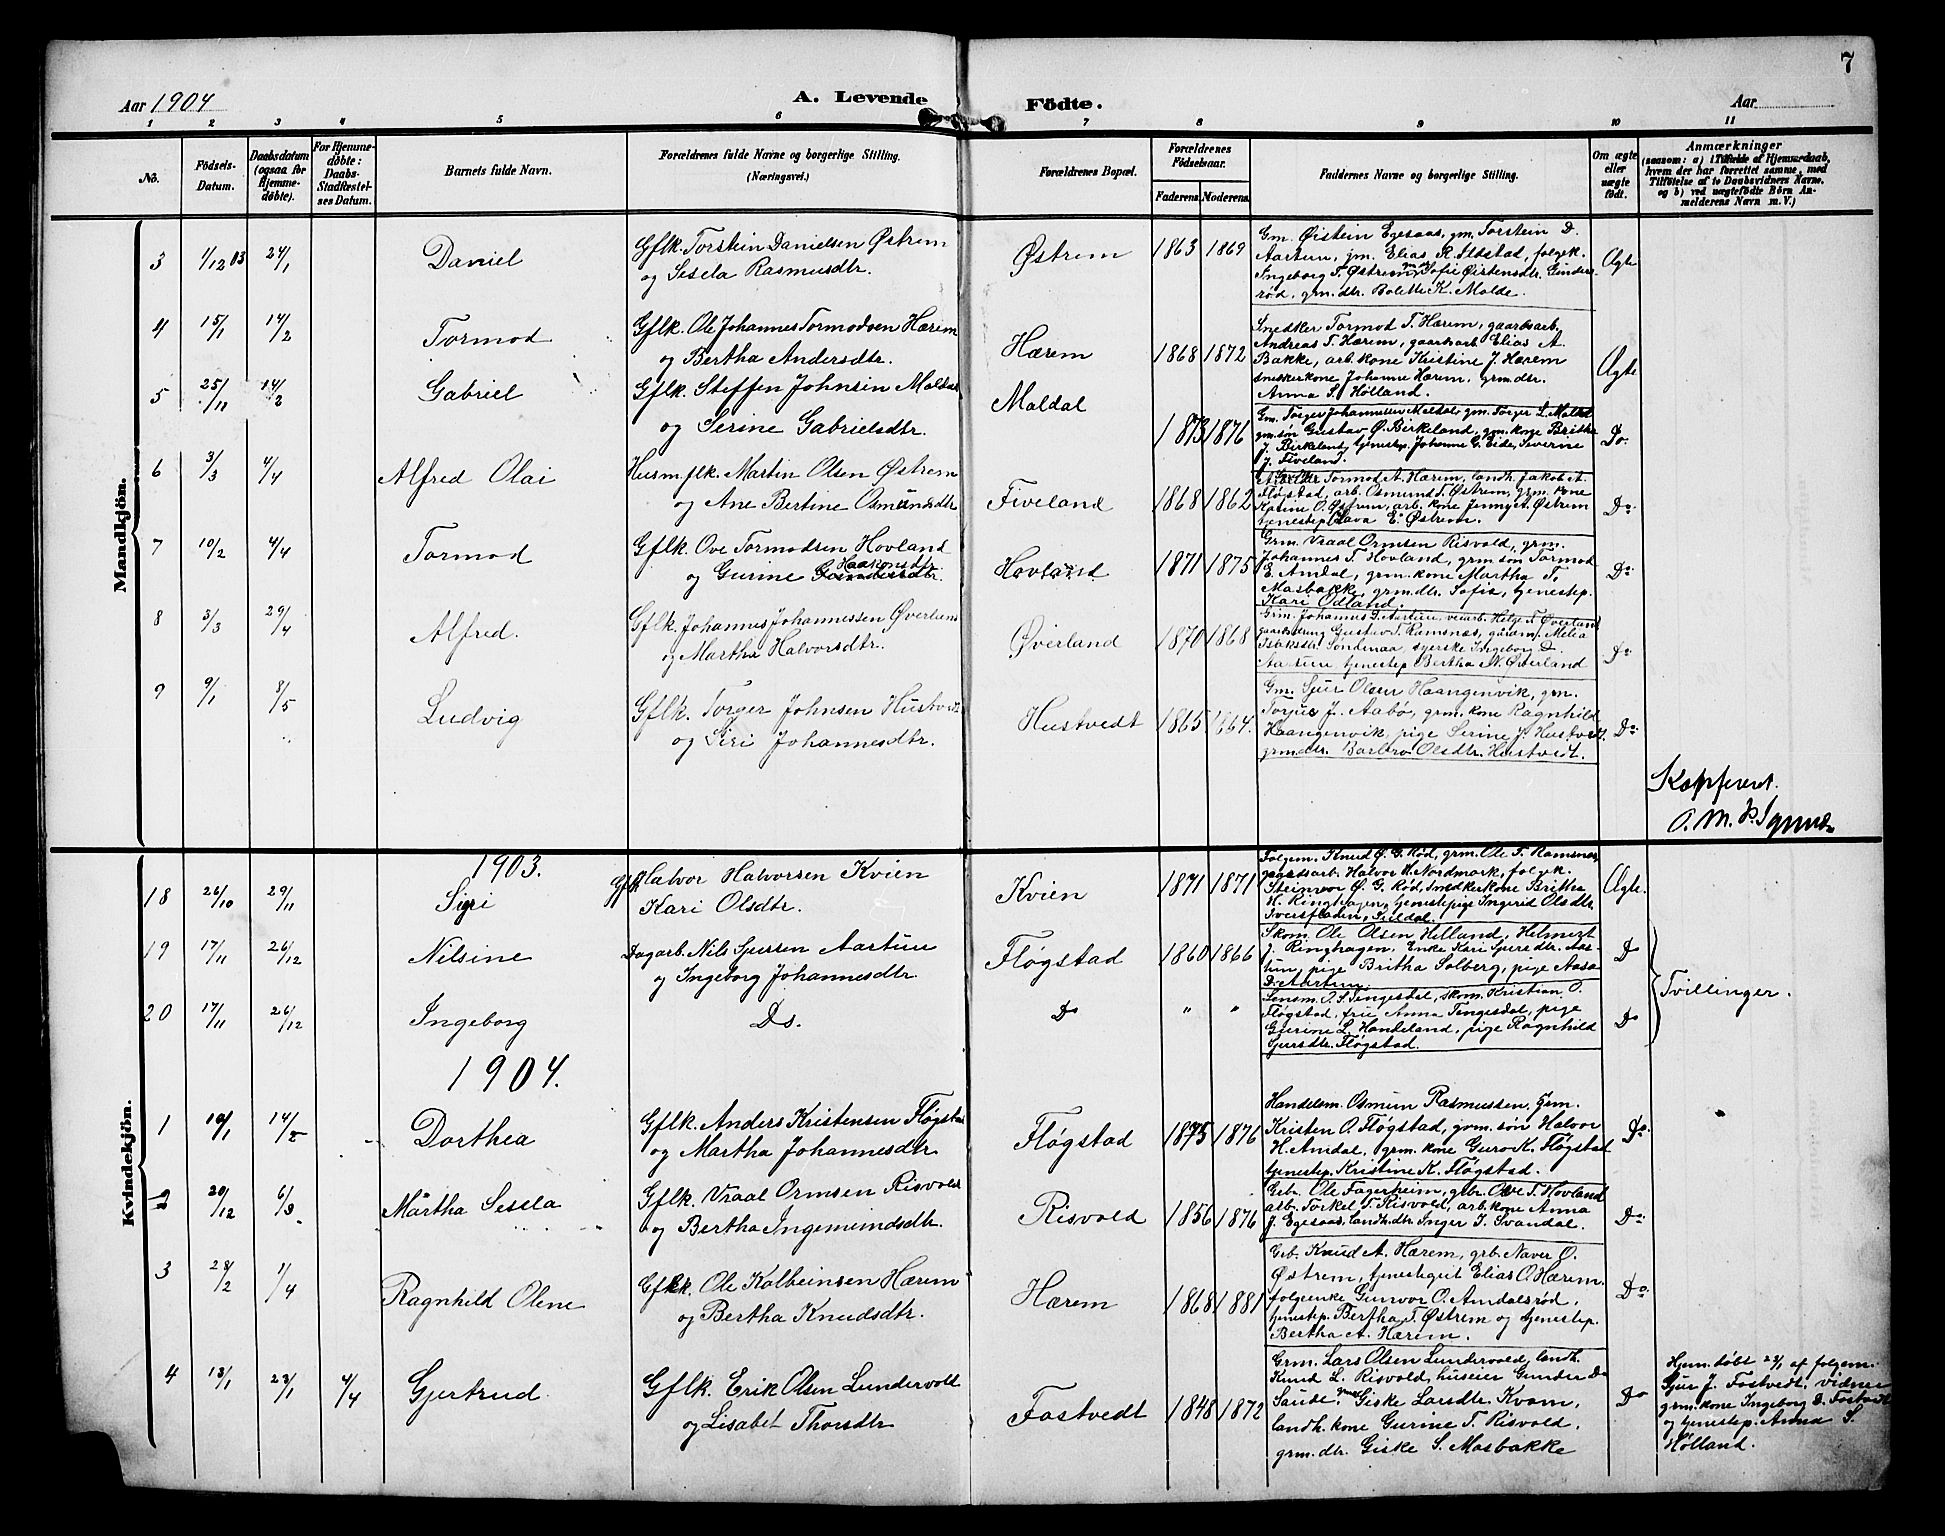 7
Aar 1904
A. Levende Födte.
Aar
1 2 3 4 5 6 7 8 9 10 11
No.
Födsels-
Datum.
Daabsdatum
(ogsaa for
Hjemme-
døbte).
For Hjemme-
døbte:
Daabs-
Stadfæstel-
ses Datum.
Barnets fulde Navn.
Forældrenes fulde Navne og borgerlige Stilling.
(Næringsvei.)
Forældrenes Bopæl.
Forældrenes
Födselsaar.
Faderens. Moderens.
Faddernes Navne og borgerlige Stilling.
Om ægte
eller
uægte
født.
Anmærkninger
(saasom: a) i Tilfælde af Hjemmedaab,
hvem der har forrettet samme, med
Tilføielse af to Daabsvidners Navne,
og b) ved uægtefødte Börn An-
melderens Navn m. V.)
Mandkjön.
3 1/12 03 24/1 Daniel
Gflk. Torstein Danielsen Østrem
og Sesela Rasmusdtr.
Østrem 1863 1869
Gm. Øistein Egesaas, gm. Torstein D.
Aartun, gm. Elias R. Ilstad, folgek.
Ingeborg T. Østrem, Sofie Øistensdtr. Gunders-
rød, grm. dtr. Bolette K. Molde.
Ægte
4 15/1 14/2 Tormod
Gflk. Ole Johannes Tormodsen Hærem
og Bertha Andersdtr.
Hærem 1868 1872
Snedker Tormod T. Hærem, gaardsarb.
Andreas T. Hærem, gaardsarb. Elias A.
Bakke, arb. kone Kristine J. Hærem
snekkerkone Johanne Hærem, grm. dtr.
Anna S. Hølland.
Ægte
5 25/11 14/2 Gabriel
Gflk. Steffen Johnsen Maldal
og Serine Gabrielsdtr.
Maldal 1873 1876
Gm. Torger Johannessen Maldal, gm. Torger L. Maldal
gm. søn Gustav Ø. Birkeland, gm. kone Britha
J. Birkeland, tjenestep. Johanne G. Eide, Severine
J. Fiveland.
Do.
6 3/3 4/4 Alfred Olai
Husm.flk. Martin Olsen Østrem
og Ane Bertine Osmundsdtr
Fiveland 1868 1862
Tormod A. Hærem, landh. Jakob A.
Fløgstad, arb. Osmund T. Østrem, grm. kone
Karine O. Østrem, arb. kone Jenny A. Østrem
tjenestep. Lava E. Østrem.
Do
7 10/2 4/4 Tormod
Gflk. Ove Tormodsen Hovland
Haakonsdtr.
og Gurine Gundersdtr.
Hovland 1871 1875
Grm. Vraal Ormsen Risvold, grm.
Johannes T. Hovland, grm. søn Tormod
E. Amdal, grm. kone Martha T.
Masbakke, grm. dtr. Sofie, tjenestep.
Kari Ødland.
Do
8 3/3 29/4 Alfred.
Gflk. Johannes Johannessen Øverland
og Martha Halvorsdtr.
Øverland 1870 1868
Grm. Johannes D. Aartun, veiarb. Helge T. Øverland
Gustav T. Ramsnæs, Melia
Isaksdtr. Søndenaa, syerske Ingeborg D.
Aartun, tjenestep. Bertha N. Øverland
Do
9 9/1 8/5 Ludvig
Gflk. Torger Johnsen Hustvedt
og Siri Johannesdtr.
Hustvedt 1865 1864.
Gm. Sjur Olsen Haangenvik, gm.
Torjus J. Aabø, grm. kone Ragnhild
Haangenvik, pige Serine J. Hustvedt.
grm. dtr. Barbro Olsdtr. Hustvedt.
Do
Kopieret.
O. M.
Kvindekjön.
1903.
18 26/10 29/11 Siri
Gflk. Halvor Halvorsen Kvien
Kari Olsdtr.
Kvien 1871 1871
Folgem. Knud Ø. G. Rød, grm. Ole T. Ramsnæs,
jordsarb. Halvor H. Nordmork, folgek.
Steinvor Ø. G. Rød, Snedkerkone Britha
H. Ringhagen, tjenestepige Ingerid Olsdtr.
Iversfladen, Suldal.
Ægte.
19 17/11 26/12 Nilsine
Dagarb. Nils Sjursen Aartun
og Ingeborg Johannesdtr
Fløgstad 1860 1866
Skom. Ole Olsen Helland, Helmikt
J. Ringhagen, Enke Kari Sjursdtr. Aar-
tun, pige Britha Solberg, pige Aasa
D. Aartun.
Do
Tvillinger.
20 17/11 26/12 Ingeborg
Do. Do " "
Lensm. O. S. Tengesdal, skom. Kristian O.
Fløgstad, frue Anna Tengesdal, pige
Gurine L. Handeland, pige Ragnhild
Sjursdtr. Fløgstad.
Do
1904.
1 10/1 14/2 Dorthea
Gflk. Anders Kristensen Fløgstad
og Martha Johannesdtr
Fløgstad 1875 1876
Handelsm. Osmun Rasmussen, Grm.
Kristen O. Fløgstad, grm. søn Halvor
H. Amdal, grm. kone Guro K. Fløgstad
tjenestep. Kristine K. Fløgstad.
Do.
2 20/12 6/3 Martha Sesela
Gflk. Vraal Ormsen Risvold
og Bertha Ingemundsdtr.
Risvold 1856 1876
Gbr. Ole Fagerheim, gbr. Ove T. Hovland
arb. Torkel T. Risvold, arb. kone Anna
J. Egesaas, landh. dtr. Inger I. Svandal.
Do
3 28/2 1/4 Ragnhild Olene
Gflk. Ole Kolbeinsen Hærem
og Bertha Knudsdtr.
Hærem 1868 1881
Gbr. Knud A. Hærem, grb. Naver O.
Østrem, tjenestegut Elias O. Hærem.
folgeenke Gunvor O. Amdalsrød,
tjenestep. Bertha T. Østrem og tjenestep.
Bertha A. Hærem.
Do
4 13/1 23/1 4/4 Gjertrud.
Gflk. Erik Olsen Lundervold
og Lisabet Thorsdtr
Fostvedt 1848 1872
Grm. Lars Olsen Lundervold, landh.
Knud L. Risvold, huseier Gunder D
Saude, Giske Larsdtr. Kvam,
landh. kone Gurine T. Risvold,
grm. dtr. Giske S. Masbakke
Do
Hjem. døbt 23/1 af folgem.
Sjur J. Fostvedt, vidner
grm. kone Ingeborg D. Fostvedt
og tjenestep. Anna S.
Hølland.